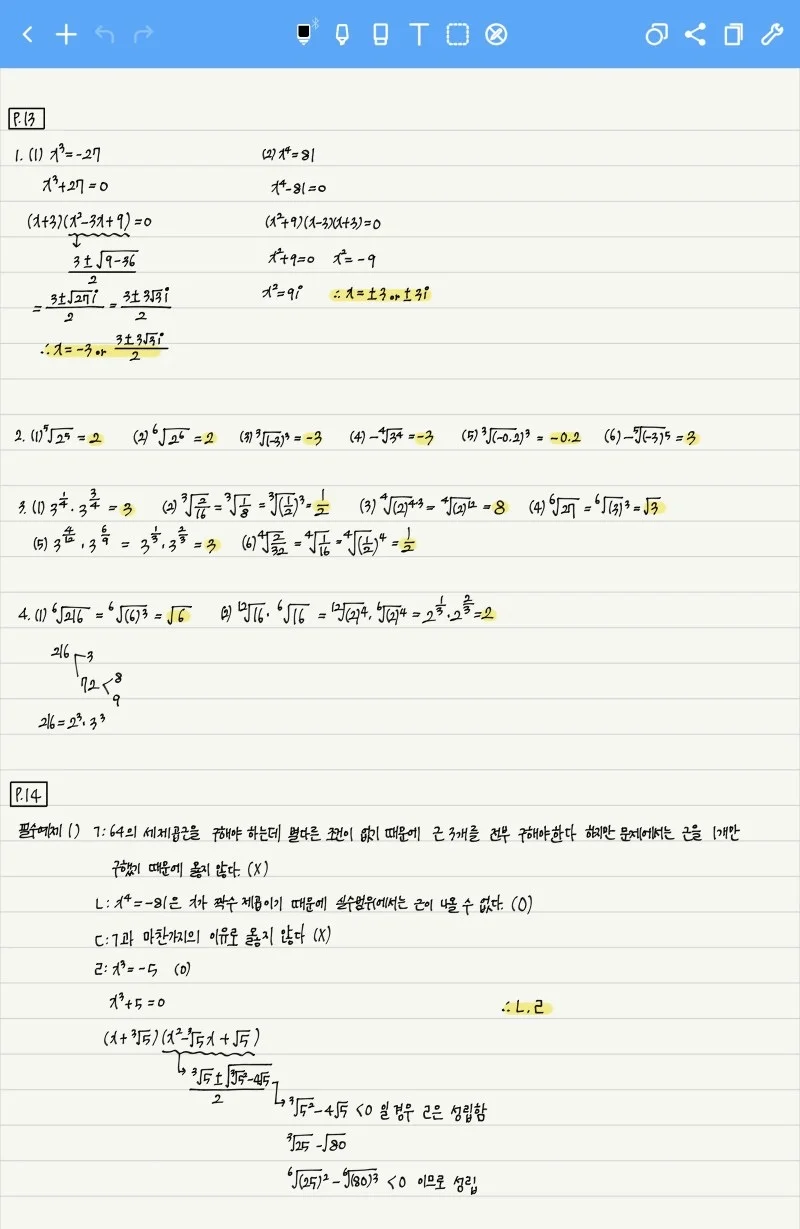 P.13
1. (1) x³=-27 (2) x⁴=81
x³+27=0 x⁴-81=0
(x+3)(x²-3x+9)=0 (x²+9)(x-3)(x+3)=0
3±√9-36 / 2 x²+9=0 x²=-9
= 3±√27i / 2 = 3±3√3i / 2 x²=9i ∴ x=±3 or ±3i
∴ x=-3 or 3±3√3i / 2
2. (1) ⁵√2⁵ = 2 (2) ⁶√2⁶ = 2 (3) ³√(-3)³ = -3 (4) -⁴√3⁴ = -3 (5) ³√(-0.2)³ = -0.2 (6) -⁵√(-3)⁵ = 3
3. (1) 3^(1/4)·3^(3/4) = 3 (2) ³√(2/16) = ³√(1/8) = ³√(1/2)³ = 1/2 (3) ⁴√(2)⁴·³ = ⁴√(2)¹² = 8 (4) ⁶√27 = ⁶√(3)³ = √3
(5) 3^(4/12)·3^(6/9) = 3^(1/3)·3^(2/3) = 3 (6) ⁴√(2/32) = ⁴√(1/16) = ⁴√(1/2)⁴ = 1/2
4. (1) ⁶√216 = ⁶√(6)³ = √6 (2) ¹²√16·⁶√16 = ¹²√(2)⁴·⁶√(2)⁴ = 2^(1/3)·2^(2/3) = 2
216 3
72 8
9
216=2³·3³
P.14
필수예제 1) ㄱ: 64의 세제곱근을 구해야 하는데 별다른 조건이 없기 때문에 근 3개를 전부 구해야한다 하지만 문제에서는 근을 1개만
구했기 때문에 옳지 않다. (X)
ㄴ: x⁴=-81은 x가 짝수 제곱이기 때문에 실수범위에서는 근이 나올 수 없다. (O)
ㄷ: ㄱ과 마찬가지의 이유로 옳지 않다 (X)
ㄹ: x³=-5 (O)
x³+5=0 ∴ ㄴ, ㄹ
(x+³√5)(x²-³√5x+√5)
³√5±√³√5²-4√5 / 2
³√5²-4√5 <0 일 경우 ㄹ은 성립함
³√25-√80
⁶√(25)²-⁶√(80)³ <0 이므로 성립